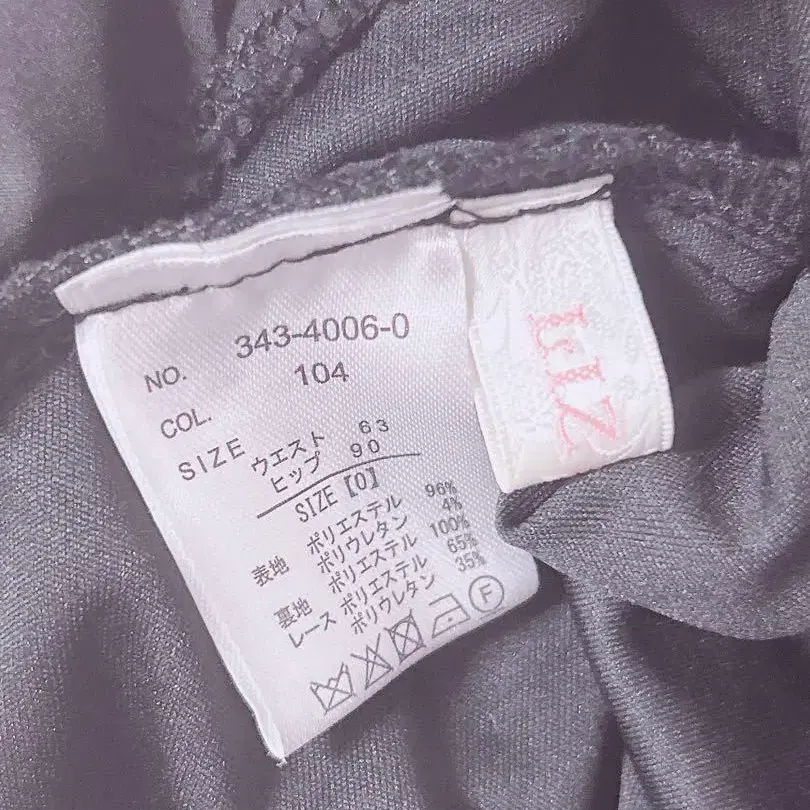 NO. 343-4006-0
COL. 104
SIZE ウエスト 63
ヒップ 90
SIZE【0】
表地 ポリエステル 96%
ポリウレタン 4%
裏地 ポリエステル 100%
レース ポリエステル 65%
ポリウレタン 35%
F
LIZ